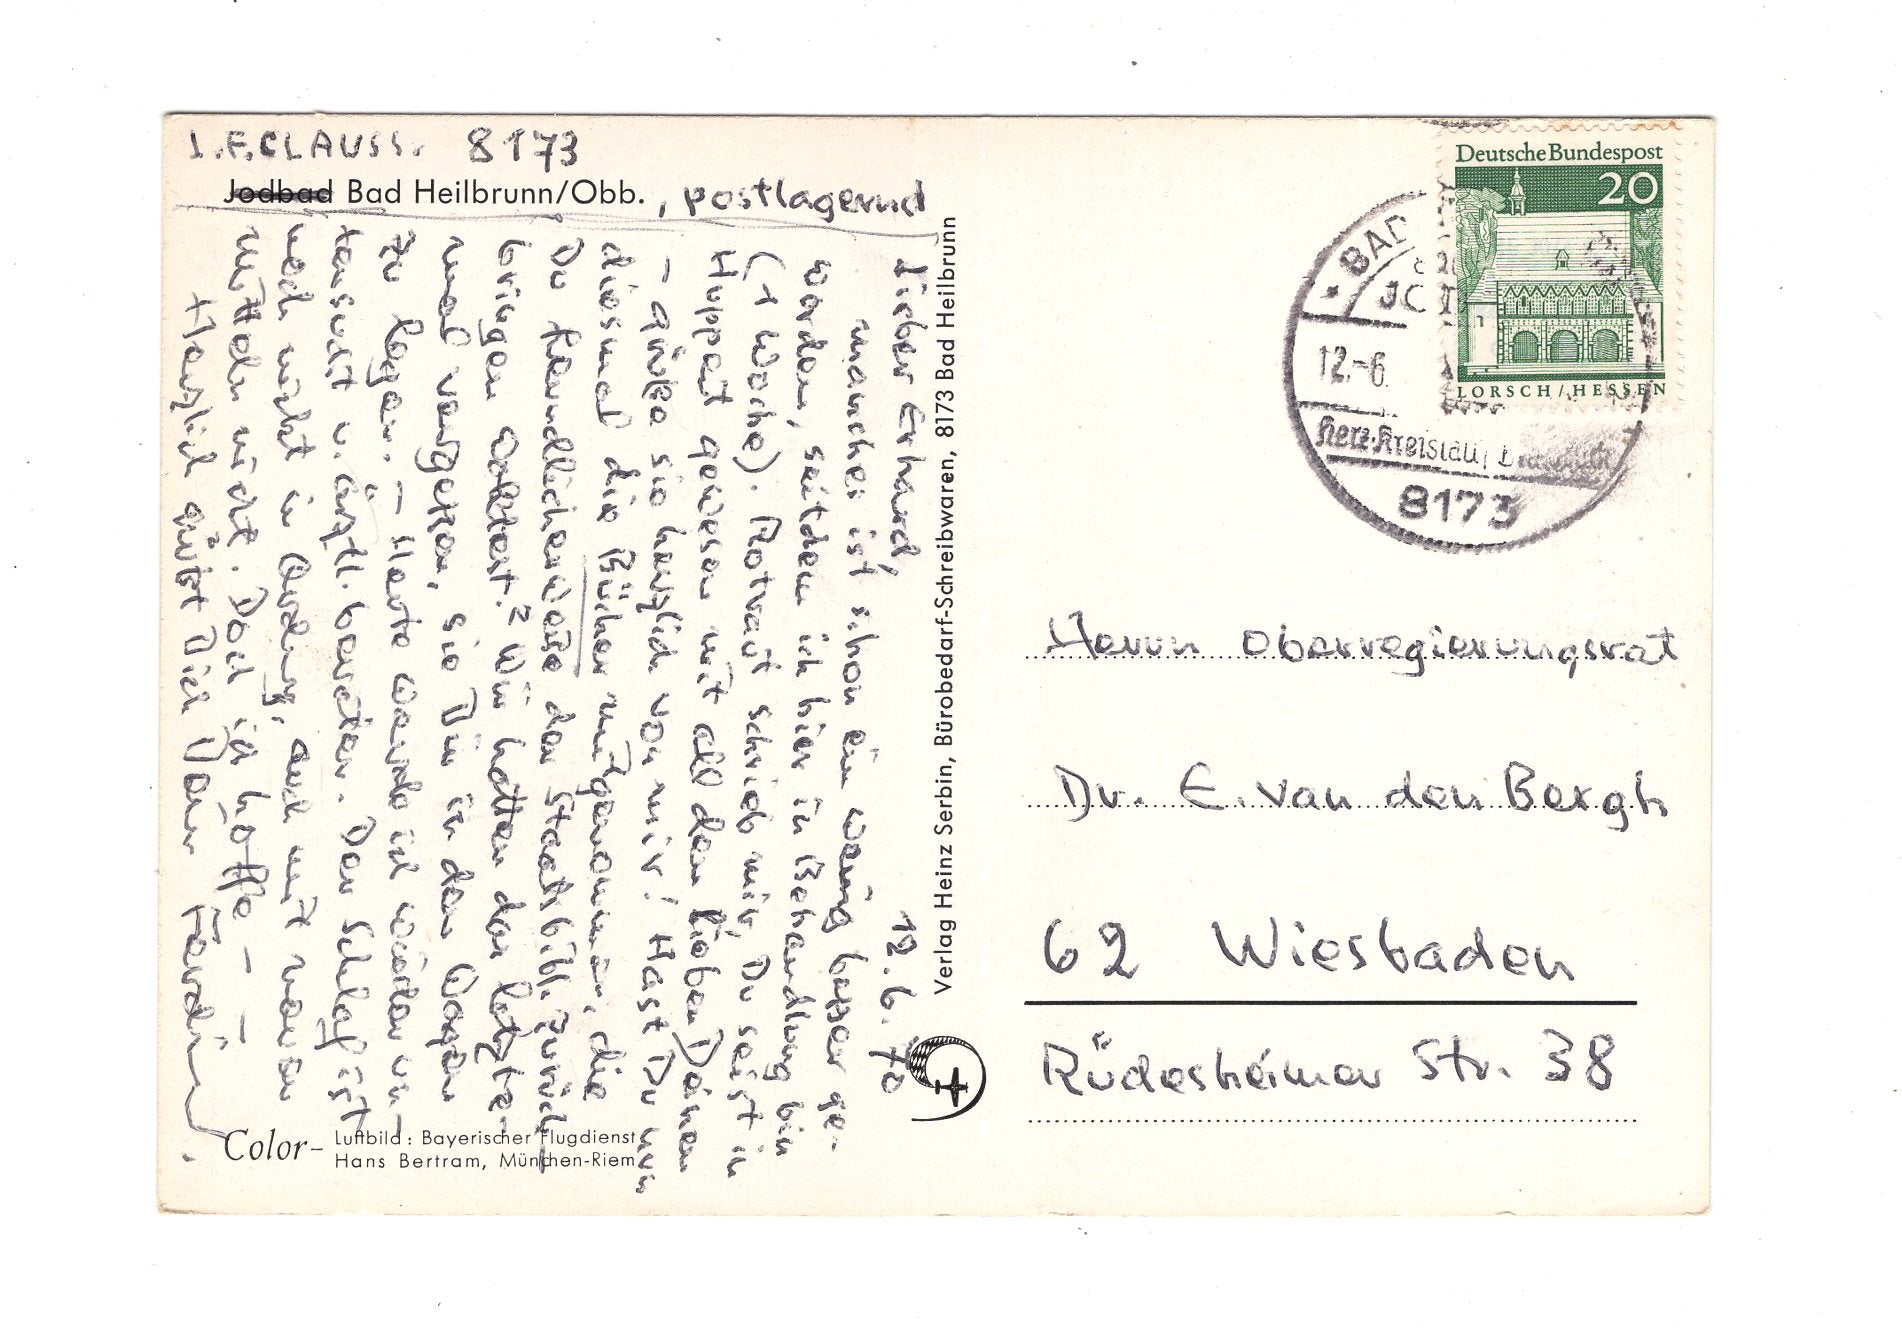 J.F.CLAUSS. 8173
Jodbad Bad Heilbrunn/Obb., postlagernd
12.6.70
Lieber Erhard,
manches ist schon ein wenig besser ge-
worden, seitdem ich hier in Behandlung bin
(1 Woche). Rotraut schrieb mir, Du seist in
Huppert gewesen mit all den lieben Deinen
– grüße sie herzlich von mir! Hast Du nun
diesmal die Bücher mitgenommen, die
Du freundlicherweise der Staatsbibl. zurück-
bringen wolltest? Wir hatten das letzte-
mal vergessen, sie Dir in den Wagen
zu legen. – Heute werde ich wieder un-
tersucht u. ärztl. beraten. Der Schlaf ist
noch nicht in Ordnung, auch mit neuen
Mitteln nicht. Doch ich hoffe – –
Herzlich grüßt Dich Dein Ferdin
Color- Luftbild: Bayerischer Flugdienst
Hans Bertram, München-Riem
Verlag Heinz Serbin, Bürobedarf-Schreibwaren, 8173 Bad Heilbrunn
Deutsche Bundespost
20
LORSCH/HESSEN
BAD
12.-6.
Herz-Kreislauf
8173
Herrn Oberregierungsrat
Dr. E. van den Bergh
62 Wiesbaden
Rüdesheimer Str. 38